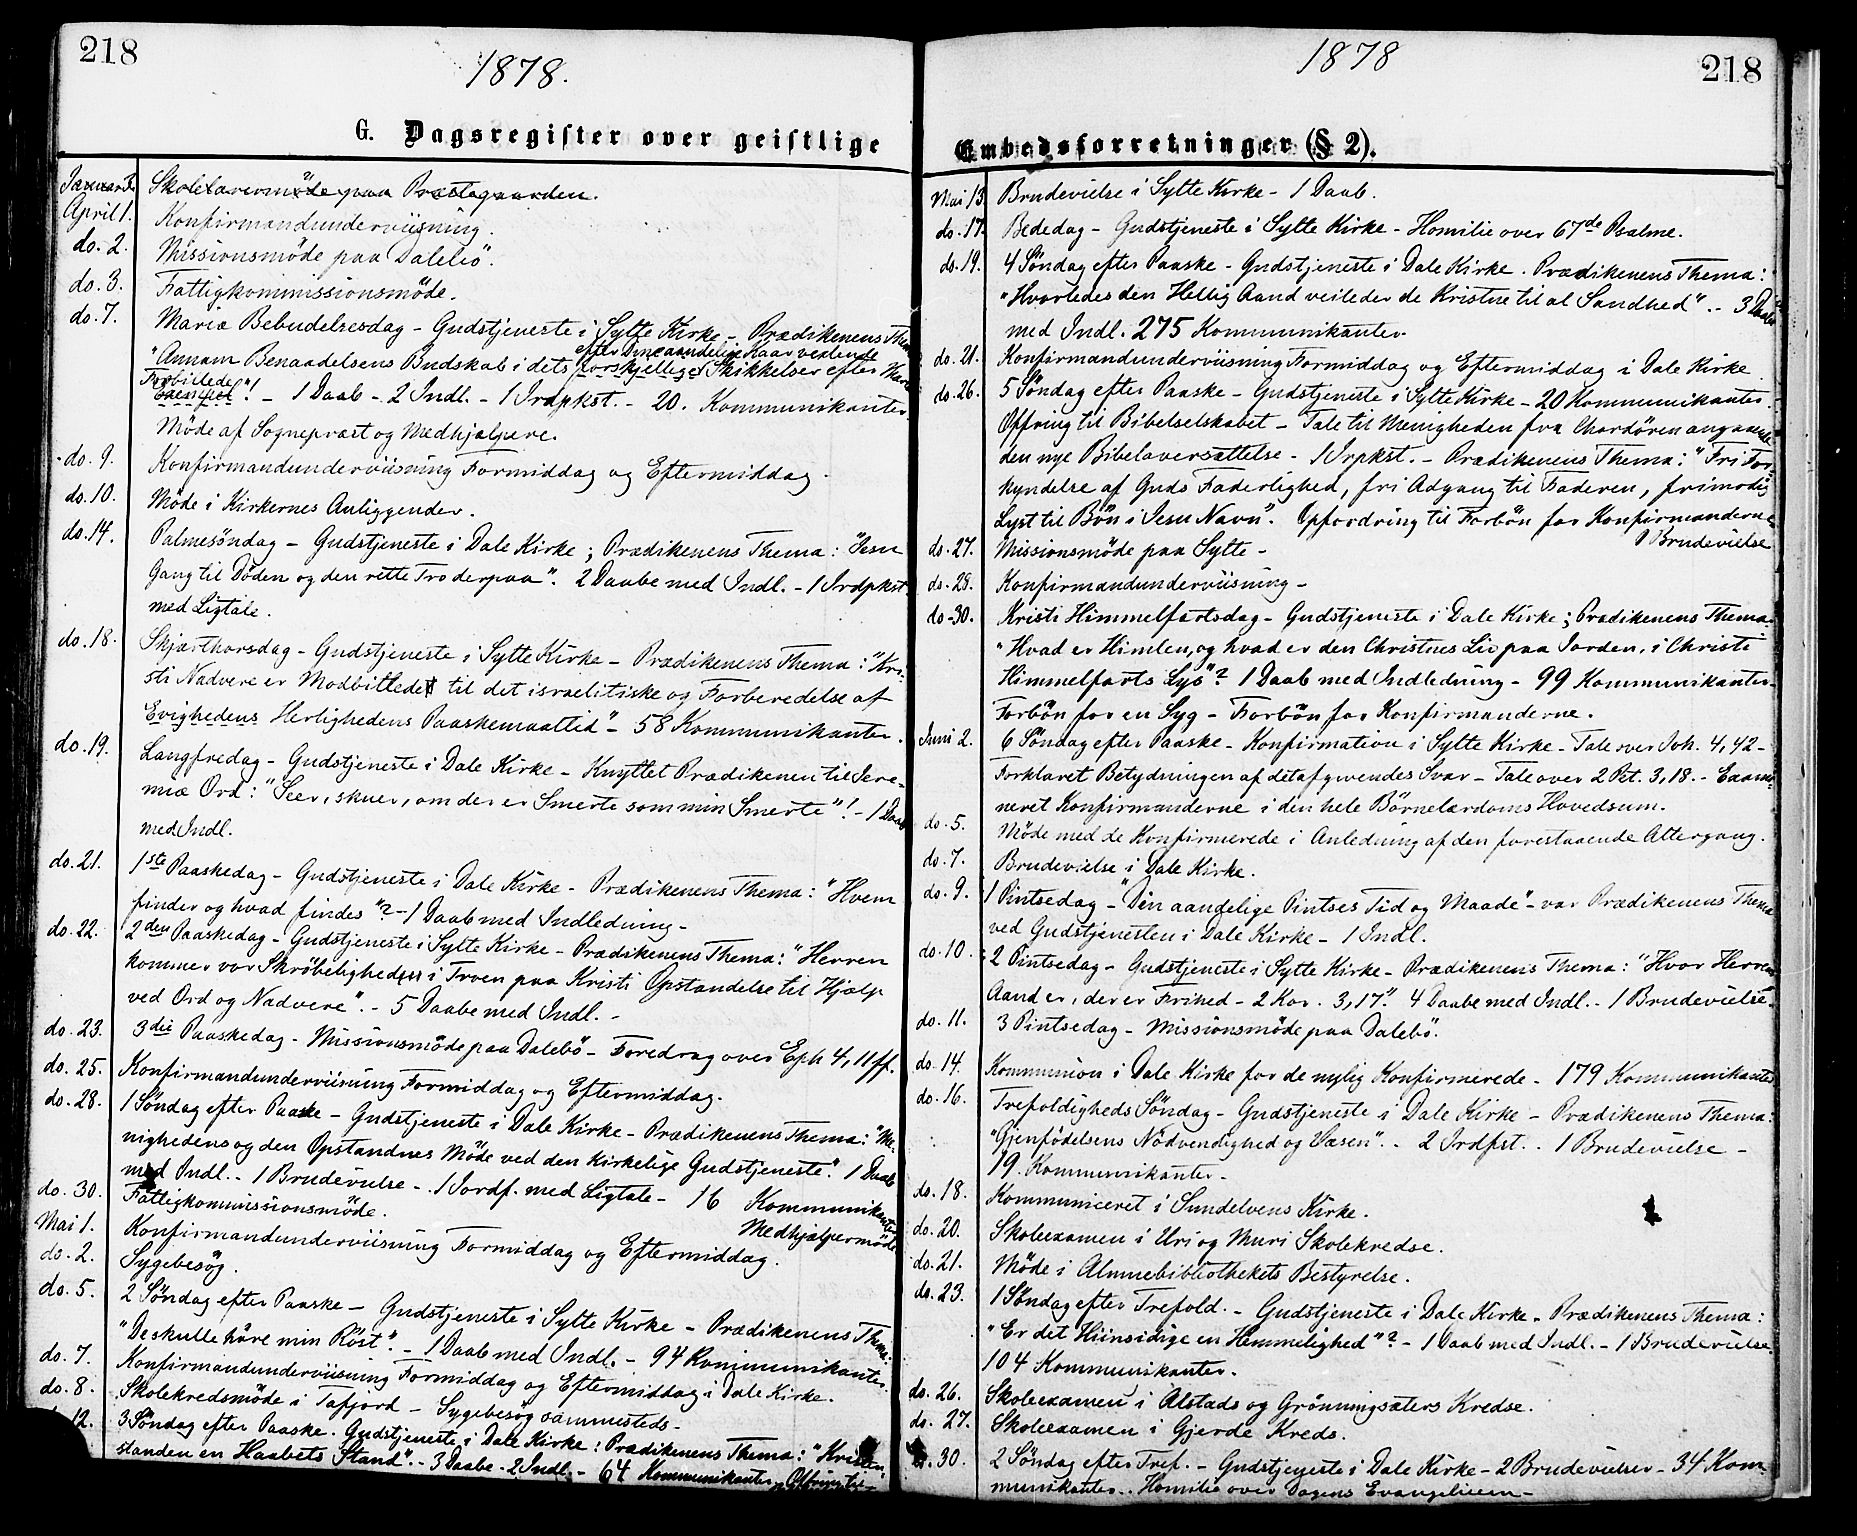 218
1878.
G. Dagsregister over geistlige
Januar
Skolelærermöde paa Præstegaarden.
April 1. Konfirmandunderviisning.
do. 2. Missionsmöde paa Dalebö.
do. 3. Fattigkommissionsmöde.
do. 7. Mariæ Bebudelsesdag - Gudstjeneste i Sylte Kirke - Prædikenens Thema
efter Dine aandelige Kaar vexlende
"Annam Benaadelsens Budskab i dets forskjellige Skikkelser efter
Forbillede"! - 1 Daab - 2 Indl. - 1 Irdpkst. - 20. Kommunikanter
Möde af Sognepræst og Medhjælpere.
do. 9. Konfirmandunderviisning Formiddag og Eftermiddag.
do. 10. Möde i Kirkernes Anliggender.
do. 14. Palmesöndag - Gudstjeneste i Dale Kirke; Prædikenens Thema: "Jesu
Gang til Döden og den rette Tro derpaa". 2 Daabe med Indl. - 1 Irdpkst
med Ligtale.
do. 18. Skjærthorsdag - Gudstjeneste i Sylte Kirke - Prædikenens Thema: "Kri-
sti Nadvere er Modbilledet til det israelitiske og Forberedelse af
Evighedens Herlighedens Paaskemaaltid" - 58 Kommunikanter.
do. 19. Langfredag - Gudstjeneste i Dale Kirke - Knyttet Prædikenen til Jere-
miæ Ord: "Seer, skuer, om der er Smerte som min Smerte"! - 1 Daab
med Indl.
do. 21. 1ste Paaskedag - Gudstjeneste i Dale Kirke - Prædikenens Thema: "Hvem
finder og hvad findes"? - 1 Daab med Indledning -
do. 22. 2den Paaskedag - Gudstjeneste i Sylte Kirke - Prædikenens Thema: "Herren
kommer vor Skröbelighed i Troen paa Kristi Opstandelse til Hjælp
ved Ord og Nadvere". - 5 Daabe med Indl. -
do. 23. 3die Paaskedag - Missionsmöde paa Dalebö - Foredrag over Eph 4, 11 ff.
do. 25. Konfirmandunderviisning Formiddag og Eftermiddag.
do. 28. 1 Söndag efter Paaske - Gudstjeneste i Dale Kirke - Prædikenens Thema: "Me-
nighedens og den Opstandnes Möde ved den kirkelige Gudstjeneste". 1 Daab
med Indl. - 1 Brudevielse - 1 Jordf. med Ligtale - 16 Kommunikanter
do. 30. Fattigkommissionsmöde. Medhjælpermöde
Mai 1. Konfirmandunderviisning Formiddag og Eftermiddag.
do. 2. Sygebesög.
do. 5. 2 Söndag efter Paaske - Gudstjeneste i Sylte Kirke - Prædikenens Thema:
"De skulle höre min Röst". - 1 Daab med Indl. - 94 Kommunikanter.
do. 7. Konfirmandunderviisning Formiddag og Eftermiddag i Dale Kirke.
do. 8. Skolekredsmöde i Tafjord - Sygebesög sammesteds -
12. 3 Söndag efter Paaske. Gudstjeneste i Dale Kirke: Prædikenens Thema: "Kristen-
standen en Haabets Stand". - 3 Daabe - 2 Indl. - 64 Kommunikanter
1878
218
Embedsforretninger (§ 2).
Mai 13. Brudevielse i Sylte Kirke - 1 Daab.
do. 17. Bededag - Gudstjeneste i Sylte Kirke - Homilie over 67de Psalme.
do. 19. 4 Söndag efter Paaske - Gudstjeneste i Dale Kirke. Prædikenens Thema:
"Hvorledes den Hellig Aand veileder de Kristne til al Sandhed". - 3 Daabe
med Indl. 275 Kommunikanter.
do. 21. Konfirmandunderviisning Formiddag og Eftermiddag i Dale Kirke
do. 26. 5 Söndag efter Paaske - Gudstjeneste i Sylte Kirke - 20 Kommunikanter.
Offring til Bibelselskabet - Tale til Menigheden fra Chordören angaaende
den nye Bibeloversættelse - 1 Irpkst. - Prædikenens Thema: "Fri For-
kyndelse af Guds Faderlighed, fri Adgang til Faderen, frimodig
Lyst til Bön i Jesu Navn". Opfordring til Forbön for Konfirmanderne
1 Brudevielse
do. 27. Missionsmöde paa Sylte -
do. 28. Konfirmandunderviisning -
do - 30. Kristi Himmelfartsdag - Gudstjeneste i Dale Kirke; Prædikenens Thema:
"Hvad er Himlen, og hvad er den Christnes Liv paa Jorden, i Christi
Himmelfarts Lys"? 1 Daab med Indledning - 99 Kommunikanter -
Forbön for en Syg - Forbön for Konfirmanderne.
Juni 2. 6 Söndag efter Paaske - Konfirmation i Sylte Kirke - Tale over Joh. 4, 42 -
Forklaret Betydningen af det afgivendes Svar - Tale over 2 Pet. 3, 18. - Exami-
neret Konfirmanderne i den hele Börnelærdoms Hovedsum.
do. 5. Möde med de Konfirmerede i Anledning af den forestaaende Altergang.
do. 7. Brudevielse i Dale Kirke.
do. 9. 1 Pintsedag - "Din aandelige Pintses Tid og Maade" - var Prædikenens Thema
ved Gudstjenesten i Dale Kirke - 1 Indl.
do. 10. 2 Pintsedag - Gudstjeneste i Sylte Kirke - Prædikenens Thema: "Hvor Herrens
Aand er, der er Frihed - 2 Kor. 3, 17". 4 Daabe med Indl. - 1 Brudevielse.
do. 11. 3 Pintsedag - Missionsmöde paa Dalebö.
do. 14. Kommunion i Dale Kirke for de nylig Konfirmerede - 179 Kommunikanter
do. 16. Trefoldigheds Söndag - Gudstjeneste i Dale Kirke - Prædikenens Thema:
"Gjenfödelsens Nödvendighed og Væsen". - 2 Irdfst. - 1 Brudevielse -
19. Kommunikanter -
do. 18. Kommuniceret i Sundelvens Kirke.
do. 20. Skoleexamen i Uri og Muri Skolekredse.
do. 21. Möde i Almuebibliothekets Bestyrelse.
do. 23. 1 Söndag efter Trefold. - Gudstjeneste i Dale Kirke - Prædikenens Thema:
"Er det Hiinsidige en Hemmelighed"? - 1 Daab med Indl. - 1 Brudevielse.
104 Kommunikanter.
do. 26. Skoleexamen i Alstads og Grönningsæters Kredse.
do. 27. Skoleexamen i Gjerde Kreds.
30. 2 Söndag efter Tref. - Gudstjeneste i Dale Kirke - 2 Brudevielser - 34 Kom-
munikanter. Homilie over Dagens Evangelium -